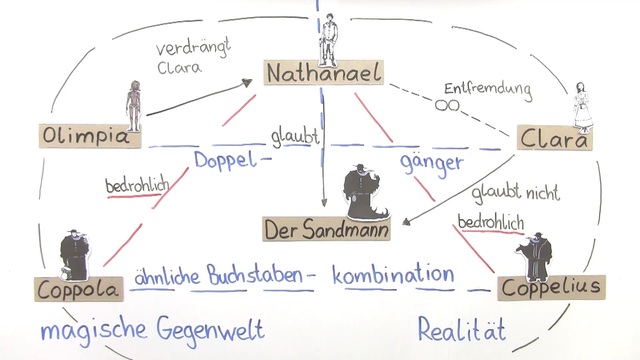 verdrängt
Clara
Nathanael
Entfremdung
Olimpia
glaubt
Clara
Doppel-
gänger
bedrohlich
glaubt nicht
bedrohlich
Der Sandmann
Coppola
ähnliche Buchstaben-
kombination
Coppelius
magische Gegenwelt
Realität